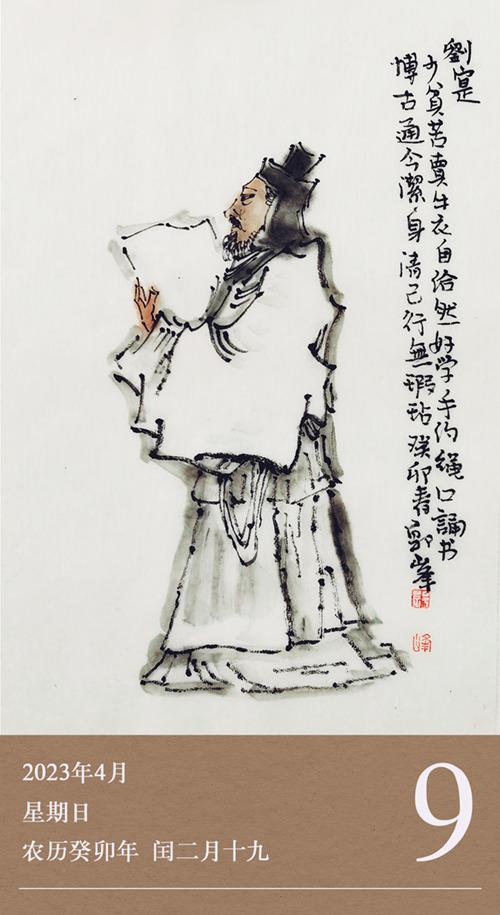 劉寔
少貧苦賣牛衣自给然好学手约绳口誦书
博古通今潔身清己行無瑕玷癸卯春郭峰
2023年4月
星期日
农历癸卯年 闰二月十九
9